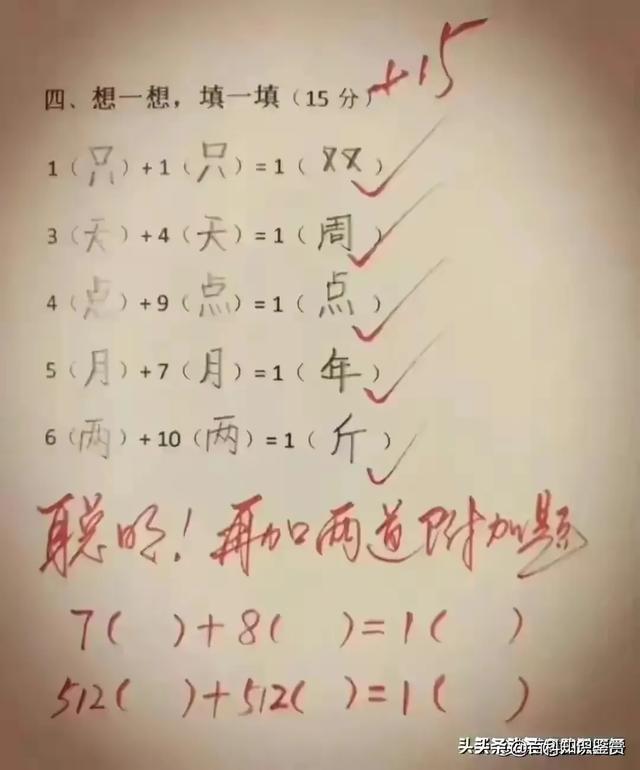 +15
四、想一想，填一填（15 分）
1（只）+1（只）=1（双）
3（天）+4（天）=1（周）
4（点）+9（点）=1（点）
5（月）+7（月）=1（年）
6（两）+10（两）=1（斤）
聪明！再加两道附加题
7(　)+8(　)=1(　)
512(　)+512(　)=1(　)